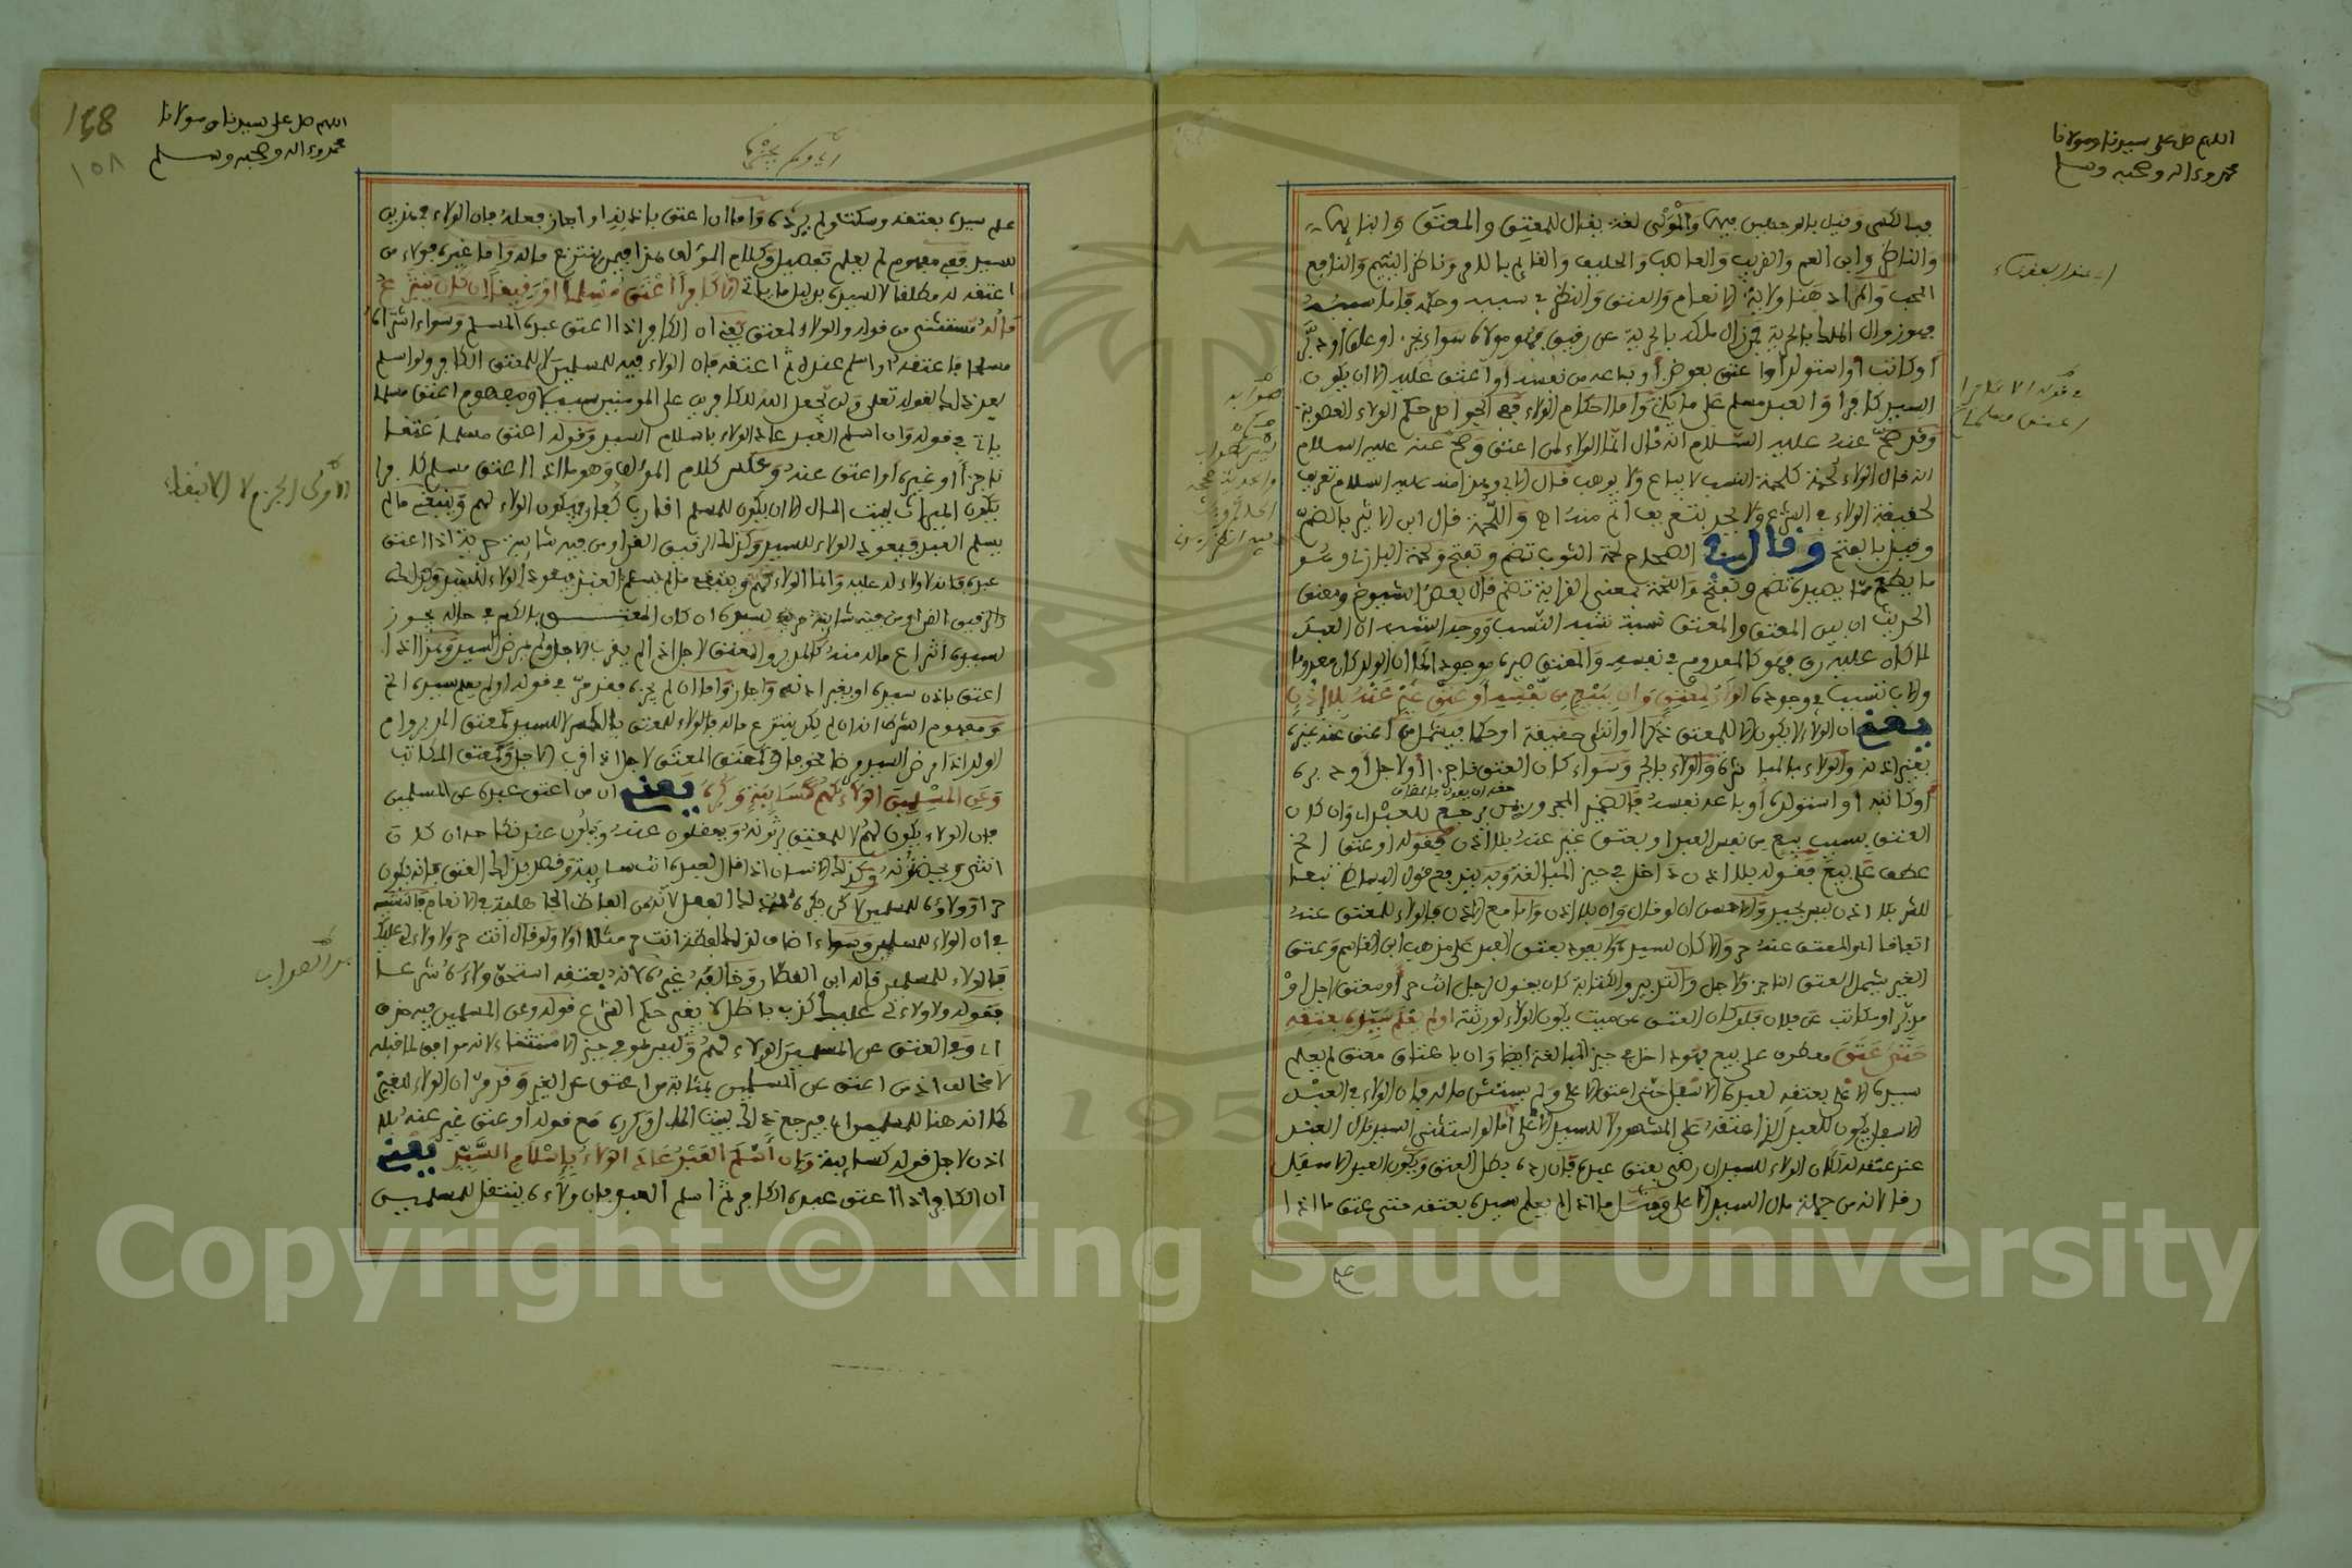 اللهم صل على سيدنا ومولانا
محمد وءاله وصحبه وسلم
فبالكسر وقيل بالوجهين فيهما والمولى لغة يقال للمعتق والمعتق
والناظر وابن العم والقريب والصاحب والحليف والقايم بالامر وناظر اليتيم والنافع
المحب والمراد هنا ولاية الانعام والعتق والنظر في سببه وحكمه فاما سببه
فهو زوال الملك بالحرية فمن زال ملكه بالحرية عن رقيق فهو مولاه سواء نجز او علق او دبر
او كاتب او استولد او اعتق بعوض او باعه من نفسه او اعتق عليه الا ان يكون
السيد كافرا والعبد مسلم على ما يكن واما احكام الولاء فهي كحكم الولاء العصوبة
وقد صح عنه عليه السلام انه قال انما الولاء لمن اعتق وصح عنه عليه السلام
انه قال الولاء لحمة كلحمة النسب لا يباع ولا يوهب قال الابي وهذا منه عليه السلام تعريف
لحقيقة الولاء في الشرع ولا تجد تعريف اتم منه اه واللحمة قال ابن الاثير بالضم
وقيل بالفتح وقال في الصحاح لحمة الثوب تضم وتفتح ولحمة البازي وهو
ما يطعم مما يصيده تضم وتفتح واللحمة بمعنى القرابة تضم قال بعض الشيوخ ومعنى
الحديث ان بين المعتق والمعتق نسبة تشبه النسب ووجه الشبه ان العبد
لما كان عليه رق فهو كالمعدوم في نفسه والمعتق صيره موجودا كما ان الولد كان معدوما
والاب تسبب في وجوده الولاء لمعتق وان ببيع من نفسه او عتق غير عنه بلا اذن
يعني ان الولاء لا يكون الا للمعتق ذكرا او انثى حقيقة او حكما فيشمل من اعتق عنه غيره
بغير اذنه والولاء بالمباشرة والولاء بالجر وسواء كان العتق ناجزا او لاجل او دبره
او كاتبه او استولده او باعه نفسه فالضمير المجرور بمن يرجع للعبد اي وان كان
العتق بسبب بيع من نفس العبد او بعتق غير عنه بلا اذن فقوله او عتق الخ
عطف على بيع فقوله بلا اذن داخل في حيز المبالغة وبه يندفع قول البساطي تبعا
للشرح بلا اذن ليس بجيد والاحسن ان لو قال وان بلا اذن واما مع الاذن فالولاء للمعتق عنه
اتفاقا اي والمعتق عنه حر والا كان لسيده ولا يعود بعتق العبد على مذهب ابن القاسم وعتق
الغير يشمل العتق الناجز ولاجل والتدبير والكتابة كان يقول لرجل انت حر او معتق لاجل او
مدبر او مكاتب عن فلان فلو كان العتق عن ميت يكون الولاء لورثته او لم يعلم سيده بعتقه
حتى عتق معطوف على بيع فهو داخل في حيز المبالغة ايضا وان باعتاق معتق لم يعلم
سيده الاعلى بعتقه لعبده الاسفل حتى اعتق الاعلى ولم يستثن ماله فان الولاء في العبد
الاسفل يكون للعبد الذي اعتقه على المشهور لا للسيد الاعلى اما لو استثنى السيد مال العبد
عند عتقه له لكان الولاء للسيد ان رضي بعتق عبده فان رده بطل العتق ويكون العبد الاسفل
رقا لانه من جملة مال السيد الاعلى ومثل ما اذا لم يعلم سيده بعتقه حتى عتق ما اذا
في قوله الا كافرا
اعتق مسلما
148
١٥٨
اللهم صل على سيدنا ومولانا
محمد وءاله وصحبه وسلم
علم سيده بعتقه وسكت ولم يرده واما ان اعتق باذنه او اجاز فعله فان الولاء في هذين
للسيد ففي مفهوم لم يعلم تفصيل وكلام المؤلف هذا فيمن ينتزع ماله واما غيره فولاء من
اعتقه له مطلقا لا لسيده بدليل ما ياتي الا كافرا اعتق مسلما او رقيقا ان كان ينتزع
ماله مستثنى من قوله والولاء لمعتق يعني ان الكافر اذا اعتق عبده المسلم وسواء اشتراه
مسلما فاعتقه او اسلم عنده ثم اعتقه فان الولاء فيه للمسلمين لا للمعتق الكافر ولو اسلم
بعد ذلك لقوله تعالى ولن يجعل الله للكافرين على المؤمنين سبيلا ومفهوم اعتق مسلما
ياتي في قوله وان اسلم العبد عاد الولاء باسلام السيد وقوله اعتق مسلما عتقا
ناجزا او غيره او اعتق عنه وعكس كلام المؤلف وهو ما اذا اعتق مسلم كافرا
يكون الميراث لبيت المال الا ان يكون للمسلم اقارب كفار فيكون الولاء لهم وينبغي ما لم
يسلم العبد فيعود الولاء للسيد وكذلك الرقيق القن او من فيه شايبة حرية اذا اعتق
عبده فانه لا ولاء له عليه وانما الولاء لهم وينبغي ما لم يسلم العبد فيعود الولاء للسيد وكذلك
الرقيق القن او من فيه شايبة حرية لسيده ان كان المعتق بالكسر في حالة يجوز
لسيده انتزاع ماله منه كالمدبر والمعتق لاجل اذا لم يقرب الاجل ولم يمرض السيد وهذا اذا
اعتق باذن سيده او بغير اذنه واجاز واما ان لم يجزه فقد مر في قوله او لم يعلم سيده الخ
ومفهوم الشرط انه ان لم يكن ينتزع ماله فالولاء للمعتق بالكسر لا للسيد كمعتق المدبر وام
الولد اذا مرض السيد مرضا مخوفا وكمعتق المعتق لاجل اذا قرب الاجل وكمعتق المكاتب
وعن المسلمين الولاء لهم كسايبة وكره يعني ان من اعتق عبده عن المسلمين
فان الولاء يكون لهم لا للمعتق يرثونه ويعقلون عنه ويلون عقد نكاحه ان كان
انثى ويحضنونه وكذلك الانسان اذا قال لعبده انت سايبة وقصد بذلك العتق فانه يكون
حرا وولاؤه للمسلمين لكن يكره له ذلك الفعل لانه من الفاظ الجاهلية في الانعام فالتشبيه
في ان الولاء للمسلمين وسواء اضاف لذلك لفظة انت حر مثلا او لا ولو قال انت حر ولا ولاء لي عليك
فالولاء للمسلمين قاله ابن القصار وخالفه غيره لانه بعتقه استحق ولاءه شرعا
فقوله ولا ولاء لي عليك كذب باطل لا يغير حكم الشرع قوله وعن المسلمين فيه حذف
اي وفي العتق عن المسلمين الولاء لهم وليس هو في حيز الاستثناء لانه موافق لما قبله
لا مخالف اذ من اعتق عن المسلمين بمثابة من اعتق عن الغير وقد مر ان الولاء للغير
كما انه هنا للمسلمين اي فيرجع ذلك لبيت المال وكرره مع قوله او عتق غير عنه بلا
اذن لاجل قوله كسايبة وان اسلم العبد عاد الولاء باسلام السيد يعني
ان الكافر اذا اعتق عبده الكافر ثم اسلم العبد فان ولاءه ينتقل للمسلمين
الاولى الجزم لا الانبغاء
Copyright © King Saud University
1957